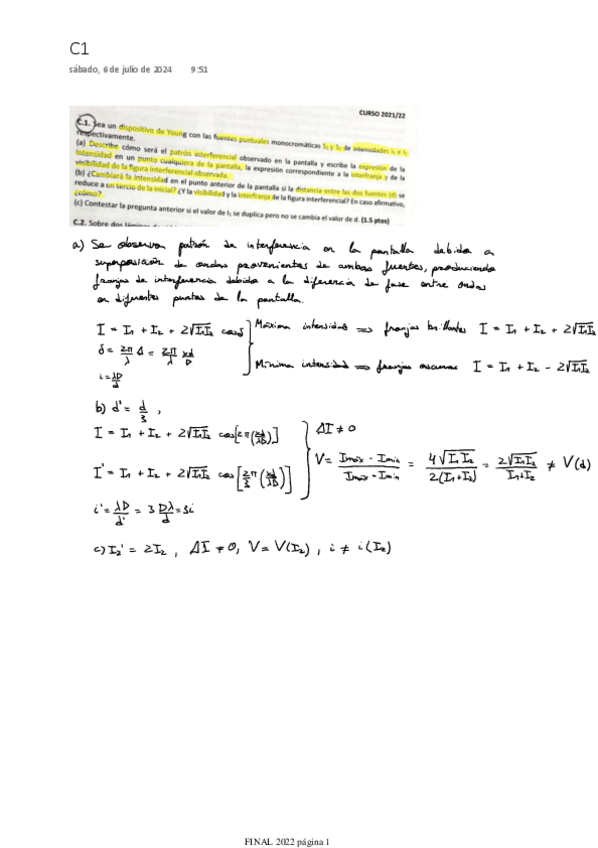 C1
sábado, 6 de julio de 2024 9:51
CURSO 2021/22
C.1. Sea un dispositivo de Young con las fuentes puntuales monocromáticas S₁ y S₂ de intensidades I₁ e I₂
respectivamente.
(a) Describe cómo será el patrón interferencial observado en la pantalla y escribe la expresión de la
intensidad en un punto cualquiera de la pantalla, la expresión correspondiente a la interfranja y de la
visibilidad de la figura interferencial observada.
(b) ¿Cambiará la intensidad en el punto anterior de la pantalla si la distancia entre las dos fuentes (d) se
reduce a un tercio de la inicial? ¿Y la visibilidad y la interfranja de la figura interferencial? En caso afirmativo,
¿cómo?
(c) Contestar la pregunta anterior si el valor de I₂ se duplica pero no se cambia el valor de d. (1.5 ptos)
C.2. Sobre dos láminas de
a) Se observa patrón de interferencia en la pantalla debido a
superposición de ondas provenientes de ambas fuentes, produciendo
franjas de interferencia debido a la diferencia de fase entre ondas
en diferentes puntos de la pantalla.
I = I₁ + I₂ + 2√I₁I₂ cosδ
Máxima intensidad ⇒ franjas brillantes I = I₁ + I₂ + 2√I₁I₂
δ = 2π/λ Δ = 2π/λ xd/D
i = λD/d
Mínima intensidad ⇒ franjas oscuras I = I₁ + I₂ - 2√I₁I₂
b) d' = d/3,
I = I₁ + I₂ + 2√I₁I₂ cos[2π(xd/λD)]
ΔI ≠ 0
I' = I₁ + I₂ + 2√I₁I₂ cos[2π/3 (xd/λD)]
V = Imáx - Imin/Imáx + Imin = 4√I₁I₂/2(I₁+I₂) = 2√I₁I₂/I₁+I₂ ≠ V(d)
i' = λD/d' = 3 Dλ/d = 3i
c) I₂' = 2I₂, ΔI ≠ 0, V = V(I₂), i ≠ i(I₂)
FINAL 2022 página 1